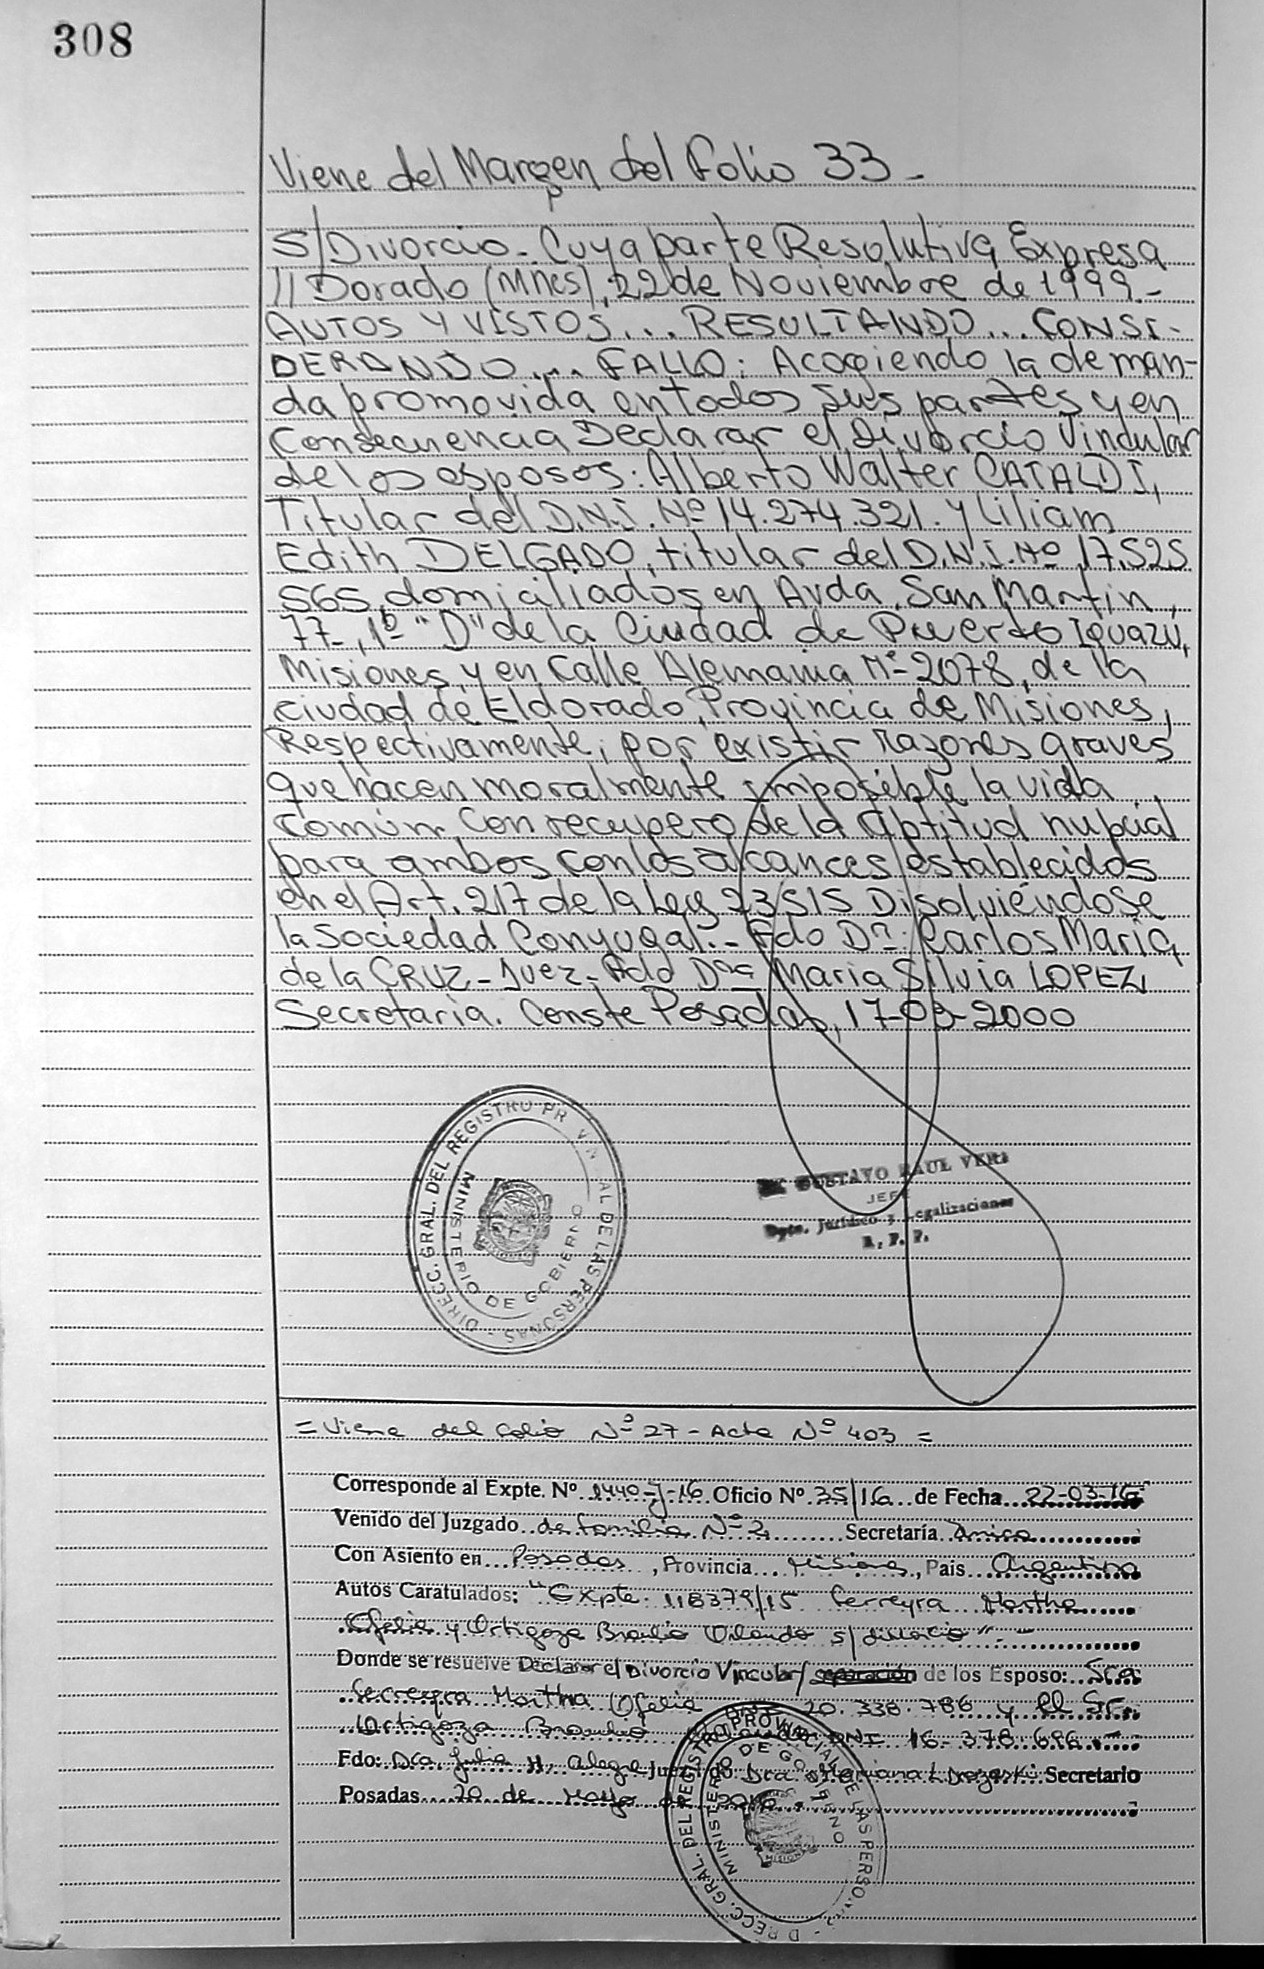 308
Viene del Margen del Folio 33-
S/Divorcio- Cuya parte Resolutiva Expresa
//Dorado (Mnes), 22 de Noviembre de 1999.-
AUTOS Y VISTOS... RESULTANDO... CONSI-
DERANDO... FALLO: Acogiendo la deman-
da promovida en todos sus partes y en
Consecuencia Declarar el Divorcio Vincular
de los esposos: Alberto Walter CATALDI,
Titular del D.N.I. Nº 14.274.321. y Liliam
Edith DELGADO, titular del D.N.I. Nº 17.525
565, domiciliados en Avda. San Martin,
77-, 1º "D" de la Ciudad de Puerto Iguazú,
Misiones, y en Calle Alemania Nº 2078, de la
ciudad de Eldorado, Provincia de Misiones,
Respectivamente, por existir razones graves
que hacen moralmente imposible la vida
común, Con recupero de la aptitud nupcial
para ambos con los alcances establecidos
en el Art. 217 de la Ley 23515 Disolviéndose
la Sociedad Conyugal.- Fdo Dr: Carlos Maria
de la CRUZ- Juez- Fdo Dra Maria Silvia LOPEZ
Secretaria. Conste Posadas, 17-03-2000
DIRECC. GRAL. DEL REGISTRO PR VIN AL DE LAS PERSONAS -
MINISTERIO DE GOBIERNO
GUSTAVO RAUL VERA
JEFE
Dpto. Jurídico y Legalizaciones
R. P. P.
= Viene del folio Nº 27 - Acta Nº 403 =
Corresponde al Expte. Nº 1440-J-16 Oficio Nº 35/16 de Fecha 22-03-16
Venido del Juzgado de familia Nº 2 Secretaría Única
Con Asiento en Posadas, Provincia Misiones, Pais Argentina
Autos Caratulados: "Expte. 118379/15 Ferreyra Martha
Ofelia y Ortigoza Braulio Orlando s/ divorcio".-
Donde se resuelve Declarar el Divorcio Vincular/ separación de los Esposo: Sra
Ferreyra Martha Ofelia DNI 20.338.786 y el Sr.
Ortigoza Braulio Orlando DNI 16.378.696.-
Fdo: Dra Julia H. Alegre Juez Fdo: Dra Mariana L. Secretario
Posadas 20 de Mayo de 2016
DIRECC. GRAL. DEL REGISTRO PROVINCIAL DE LAS PERSONAS -
MINISTERIO DE GOBIERNO
MISIONES